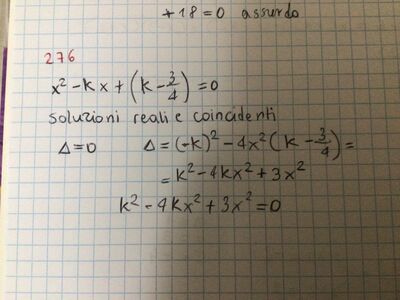 +18=0 assurdo
276
x² - kx + (k - 3/4) = 0
soluzioni reali e coincidenti
Δ=0 Δ = (-k)² - 4x² (k - 3/4) =
= k² - 4kx² + 3x²
k² - 4kx² + 3x² = 0